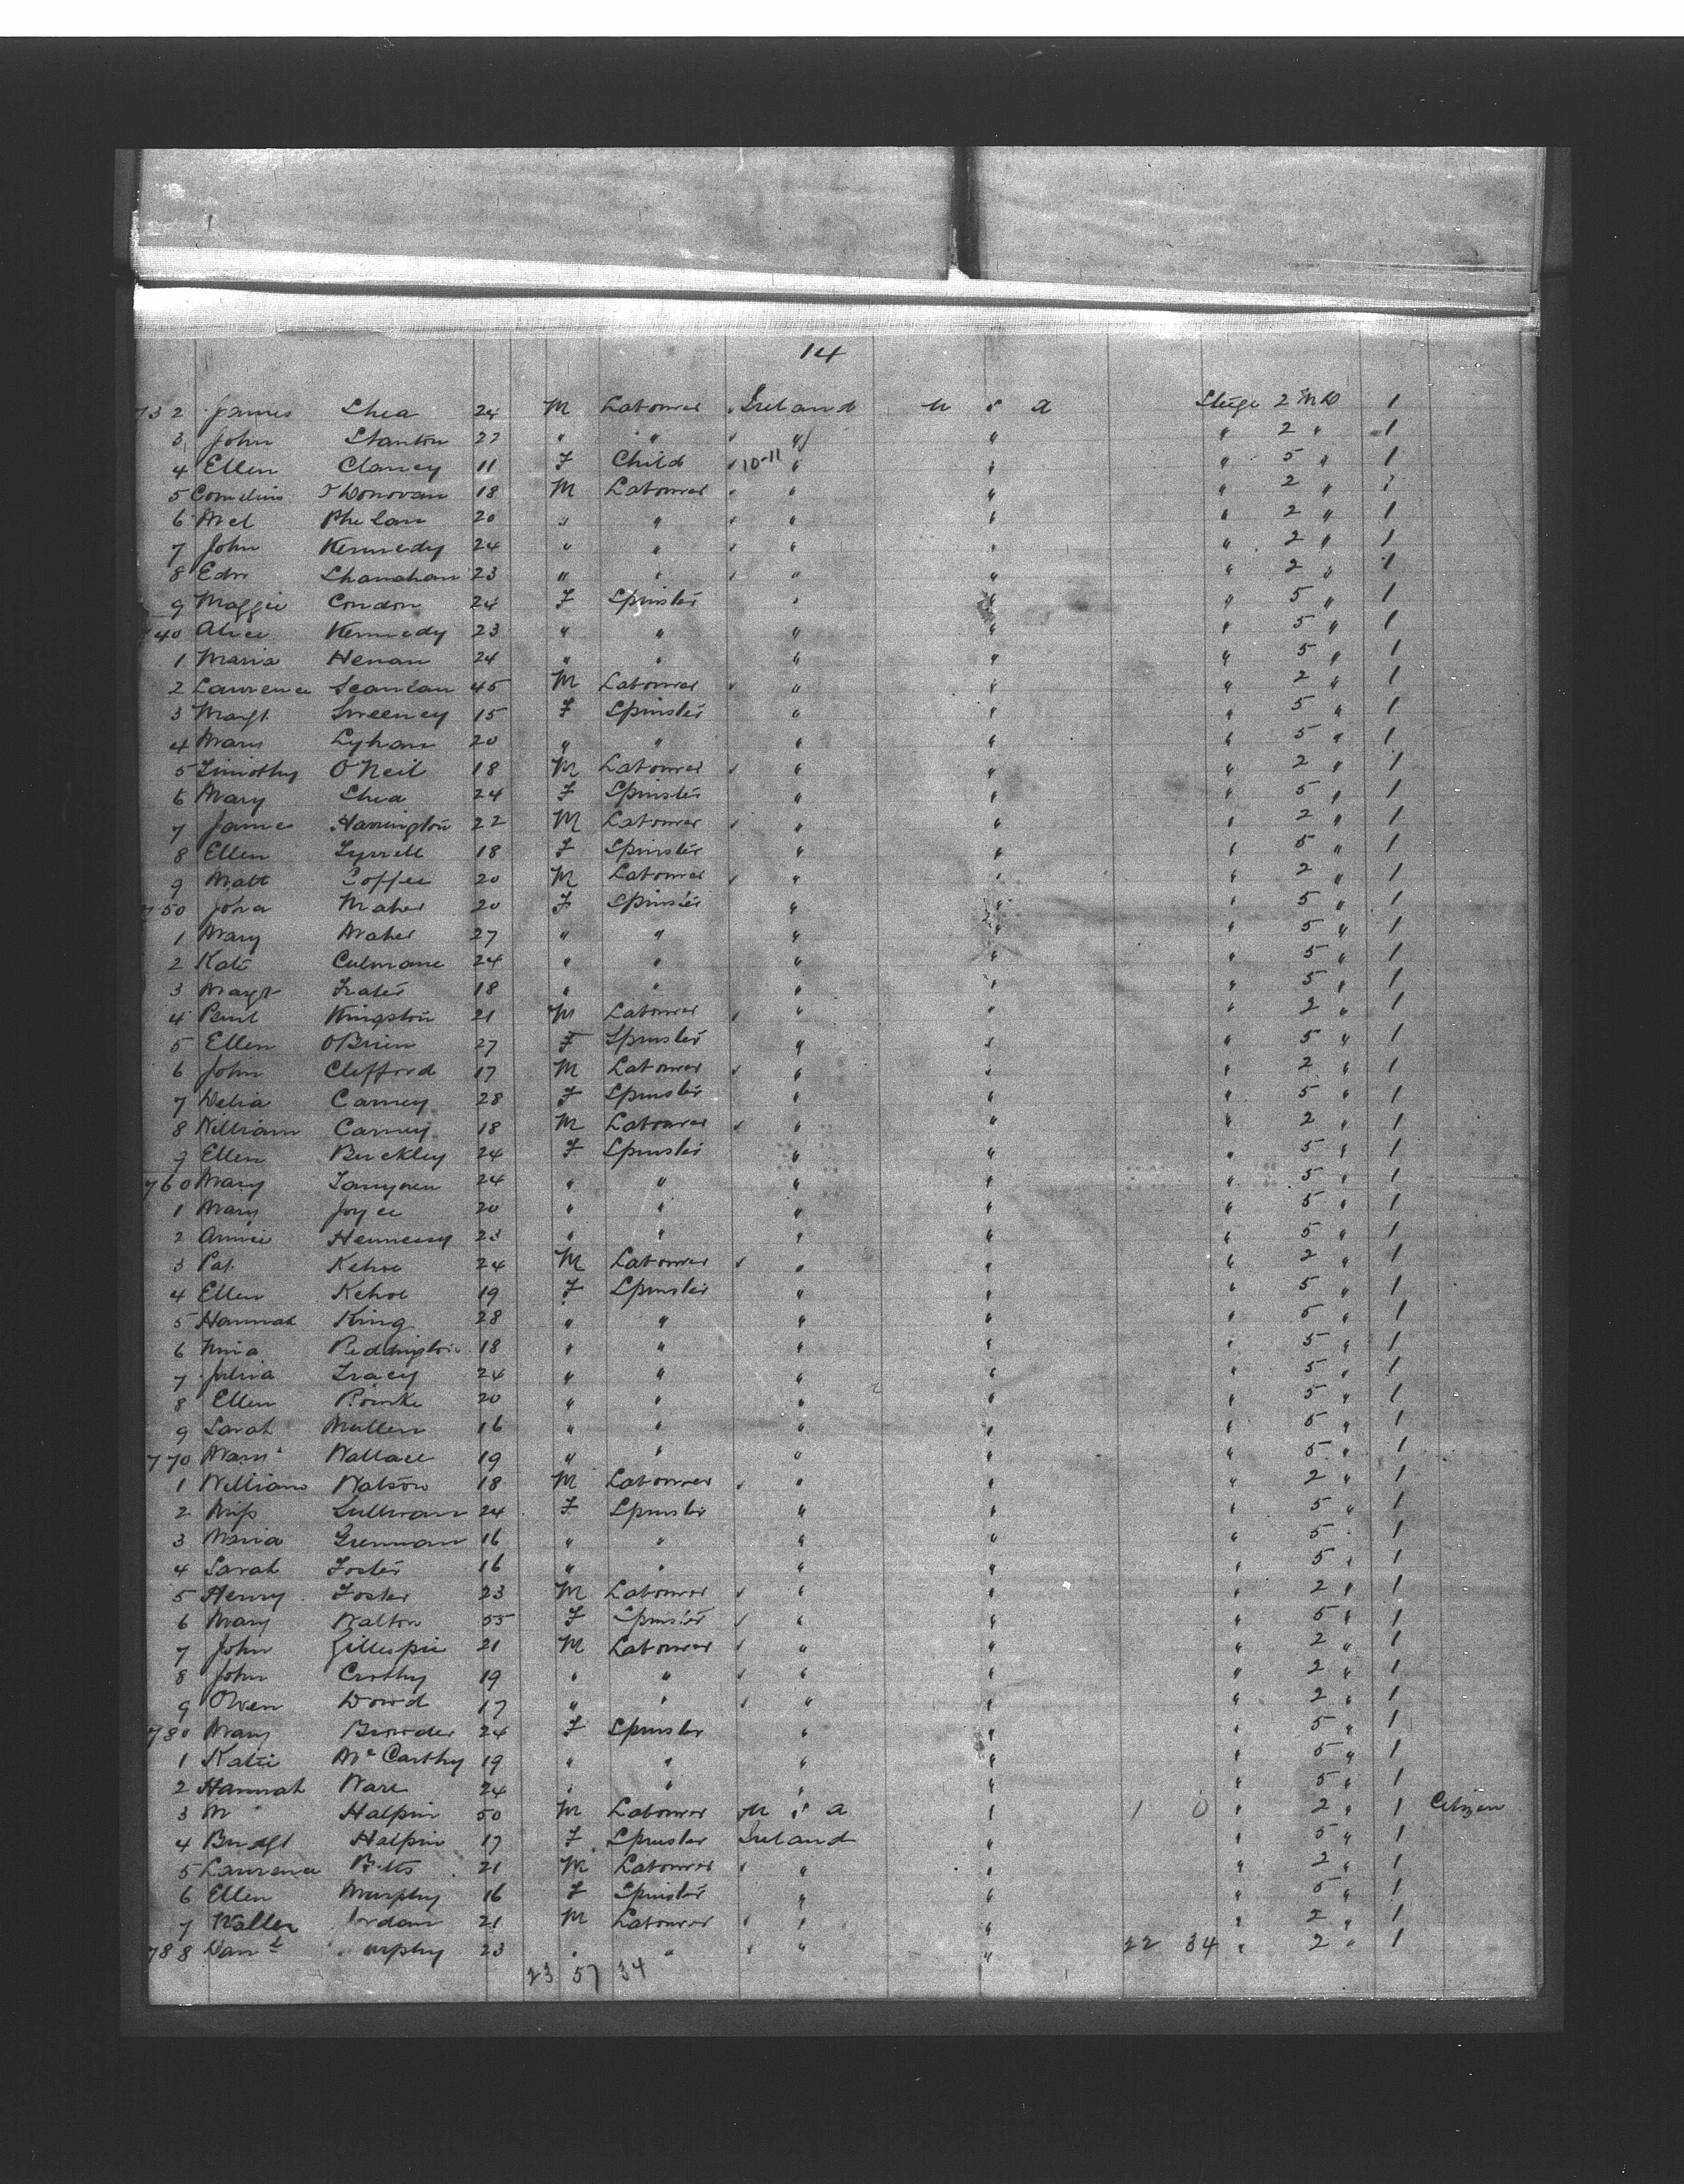 14
732 James Shea 24 M Labourer Ireland U S A Stege 2 M D 1
3 John Stanton 22 " " " " " 2 " 1
4 Ellen Clancy 11 F Child 10-11 " " " 5 " 1
5 Cornelius O'Donovan 18 M Labourer " " " 2 " 1
6 Mcl Phelan 20 " " " " " 2 " 1
7 John Kennedy 24 " " " " " 2 " 1
8 Edw Shanahan 23 " " " " " 2 " 1
9 Maggie Condon 24 F Spinster " " " 5 " 1
740 Alice Kennedy 23 " " " " " 5 " 1
1 Maria Henan 24 " " " " " 5 " 1
2 Lawrence Scanlan 45 M Labourer " " " 2 " 1
3 Margt Sweeney 15 F Spinster " " " 5 " 1
4 Mary Lyhan 20 " " " " " 5 " 1
5 Timothy O'Neil 18 M Labourer " " " 2 " 1
6 Mary Shea 24 F Spinster " " " 5 " 1
7 James Harrington 22 M Labourer " " " 2 " 1
8 Ellen Tyrrell 18 F Spinster " " " 5 " 1
9 Matt Coffee 20 M Labourer " " " 2 " 1
750 Joha Maher 20 F Spinster " " " 5 " 1
1 Mary Maher 27 " " " " " 5 " 1
2 Kate Culnane 24 " " " " " 5 " 1
3 Margt 18 " " " " " 5 " 1
4 Kingston 21 M Labourer " " " 2 " 1
5 Ellen O'Brien 27 F Spinster " " " 5 " 1
6 John Clifford 17 M Labourer " " " 2 " 1
7 Delia Carney 28 F Spinster " " " 5 " 1
8 William Carney 18 M Labourer " " " 2 " 1
9 Ellen Buckley 24 F Spinster " " " 5 " 1
760 Mary 24 " " " " " 5 " 1
1 Mary Joyce 20 " " " " " 5 " 1
2 Annie Hennessy 23 " " " " " 5 " 1
3 Pat. Kehoe 24 M Labourer " " " 2 " 1
4 Ellen Kehoe 19 F Spinster " " " 5 " 1
5 Hannah King 28 " " " " " 5 " 1
6 Nina Peddington 18 " " " " " 5 " 1
7 Julia Tracey 24 " " " " " 5 " 1
8 Ellen Rourke 20 " " " " " 5 " 1
9 Sarah Mullen 16 " " " " " 5 " 1
770 Wallace 19 " " " " " 5 " 1
1 William Watson 18 M Labourer " " " 2 " 1
2 Miss Sullivan 24 F Spinster " " " 5 " 1
3 Maria Grennan 16 " " " " " 5 " 1
4 Sarah Foster 16 " " " " " 5 " 1
5 Henry Foster 23 M Labourer " " " 2 " 1
6 Mary Walton 55 F Spinster " " " 5 " 1
7 John Gillespie 21 M Labourer " " " 2 " 1
8 John Crotty 19 " " " " " 2 " 1
9 Owen Dowd 17 " " " " " 2 " 1
780 Mary Browder 24 F Spinster " " " 5 " 1
1 Katie McCarthy 19 " " " " " 5 " 1
2 Hannah Ware 24 " " " " " 5 " 1
3 M Halpin 50 M Labourer U S A " 1 0 " 2 " 1 Citizen
4 Bridgt Halpin 17 F Spinster Ireland " " 5 " 1
5 Lawrence 21 M Labourer " " " 2 " 1
6 Ellen Murphy 16 F Spinster " " " 5 " 1
7 Walter Jordan 21 M Labourer " " " 2 " 1
788 Danl urphy 23 " " " " 22 34 " 2 " 1
23 57 34